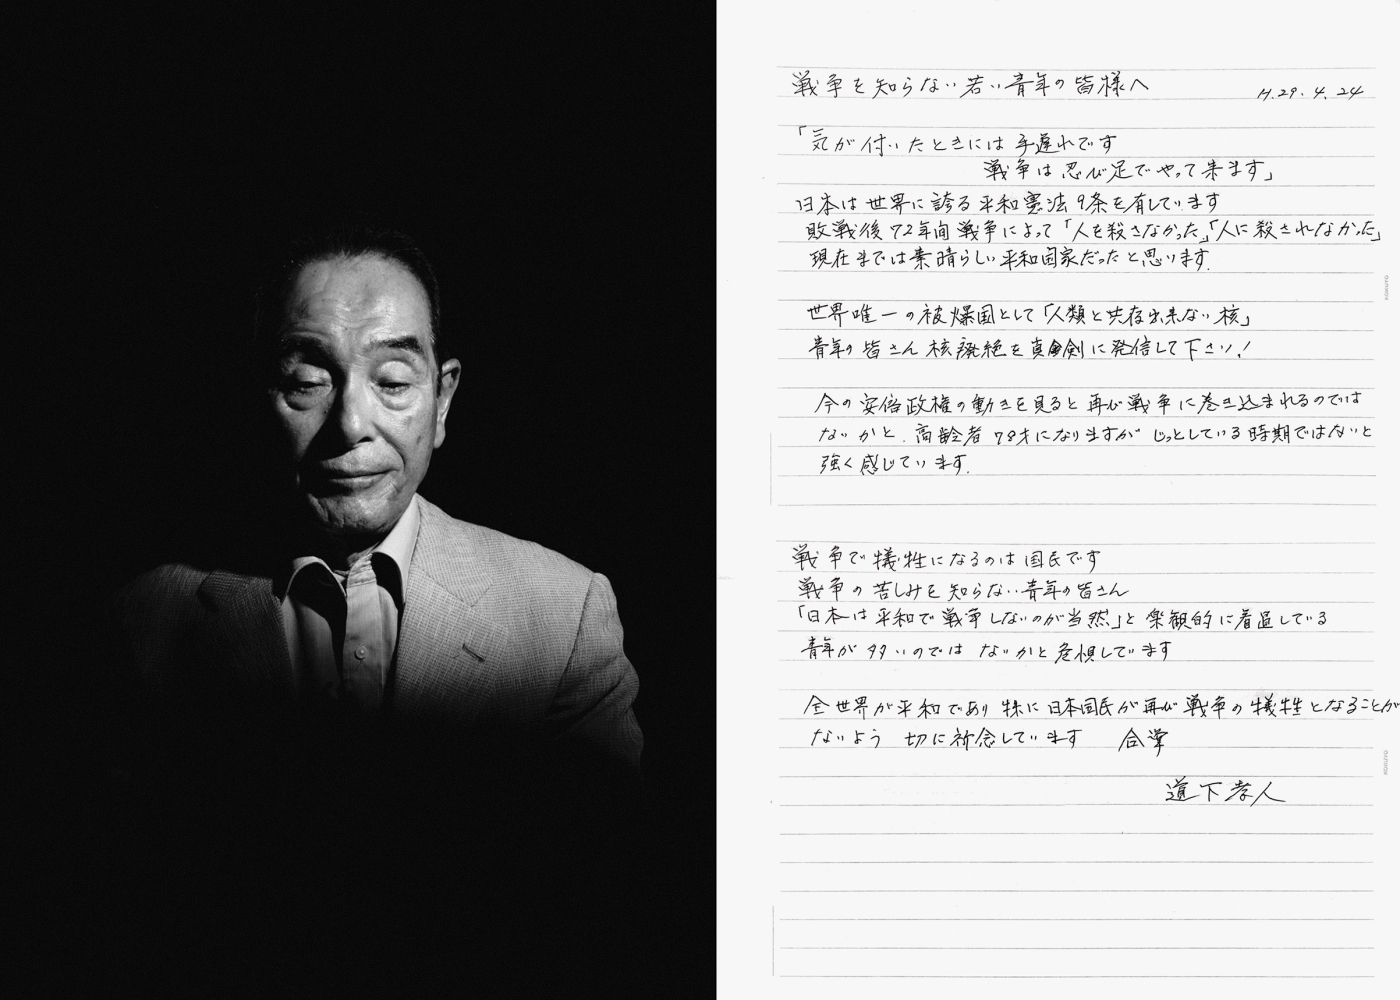 戦争を知らない若い青年の皆様へ
H.29.4.24
「気が付いたときには手遅れです
戦争は忍び足でやって来ます」
日本は世界に誇る平和憲法9条を有しています
敗戦後72年間戦争によって「人を殺さなかった」「人に殺されなかった」
現在までは素晴らしい平和国家だったと思います.
世界唯一の被爆国として「人類と共存出来ない核」
青年の皆さん核廃絶を真剣に発信して下さい!
今の安倍政権の動きを見ると再び戦争に巻き込まれるのでは
ないかと、高齢者78才になりますがじっとしている時期ではないと
強く感じています.
戦争で犠牲になるのは国民です
戦争の苦しみを知らない青年の皆さん
「日本は平和で戦争しないのが当然」と楽観的に看過している
青年が多いのではないかと危惧しています
全世界が平和であり特に日本国民が再び戦争の犠牲となることが
ないよう切に祈念しています 合掌
道下孝人
KOKUYO
KOKUYO